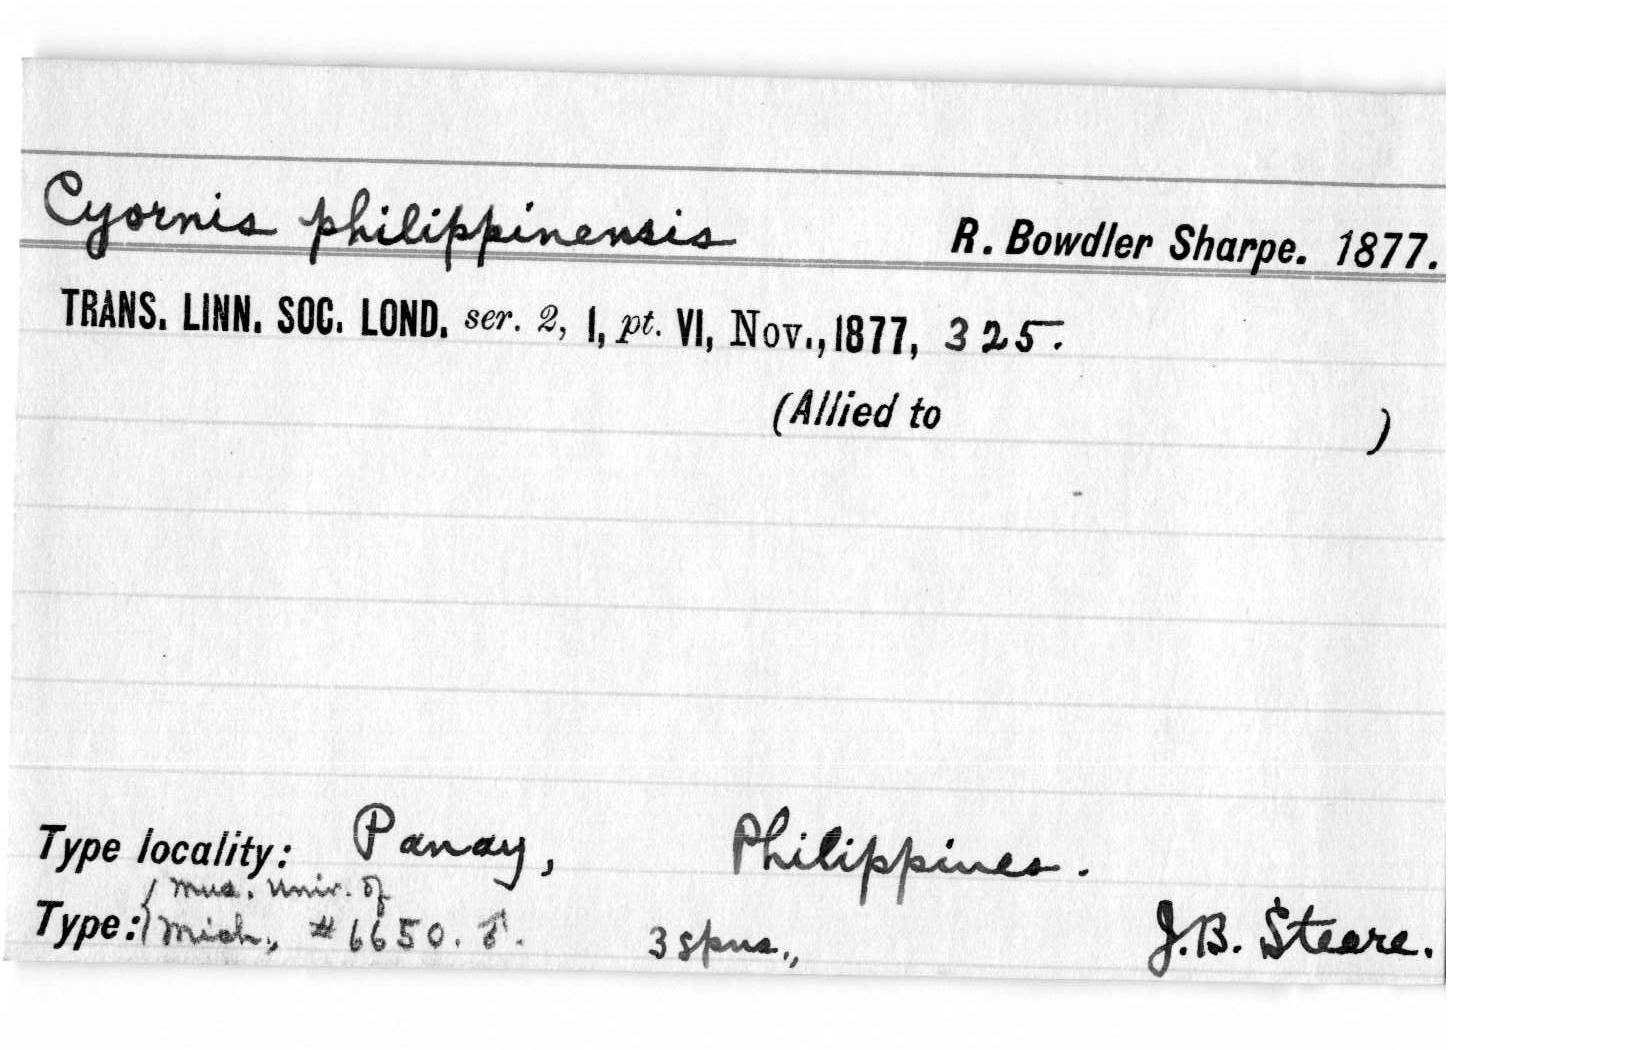 Cyornis philippinensis R. Bowdler Sharpe. 1877.
TRANS. LINN. SOC. LOND. ser. 2, I, pt. VI, Nov., 1877, 325.
(Allied to )
Type locality: Panay, Philippines.
Mus. Univ. of
Type: Mich., #6650. ♂. 3 spns., J.B. Steere.